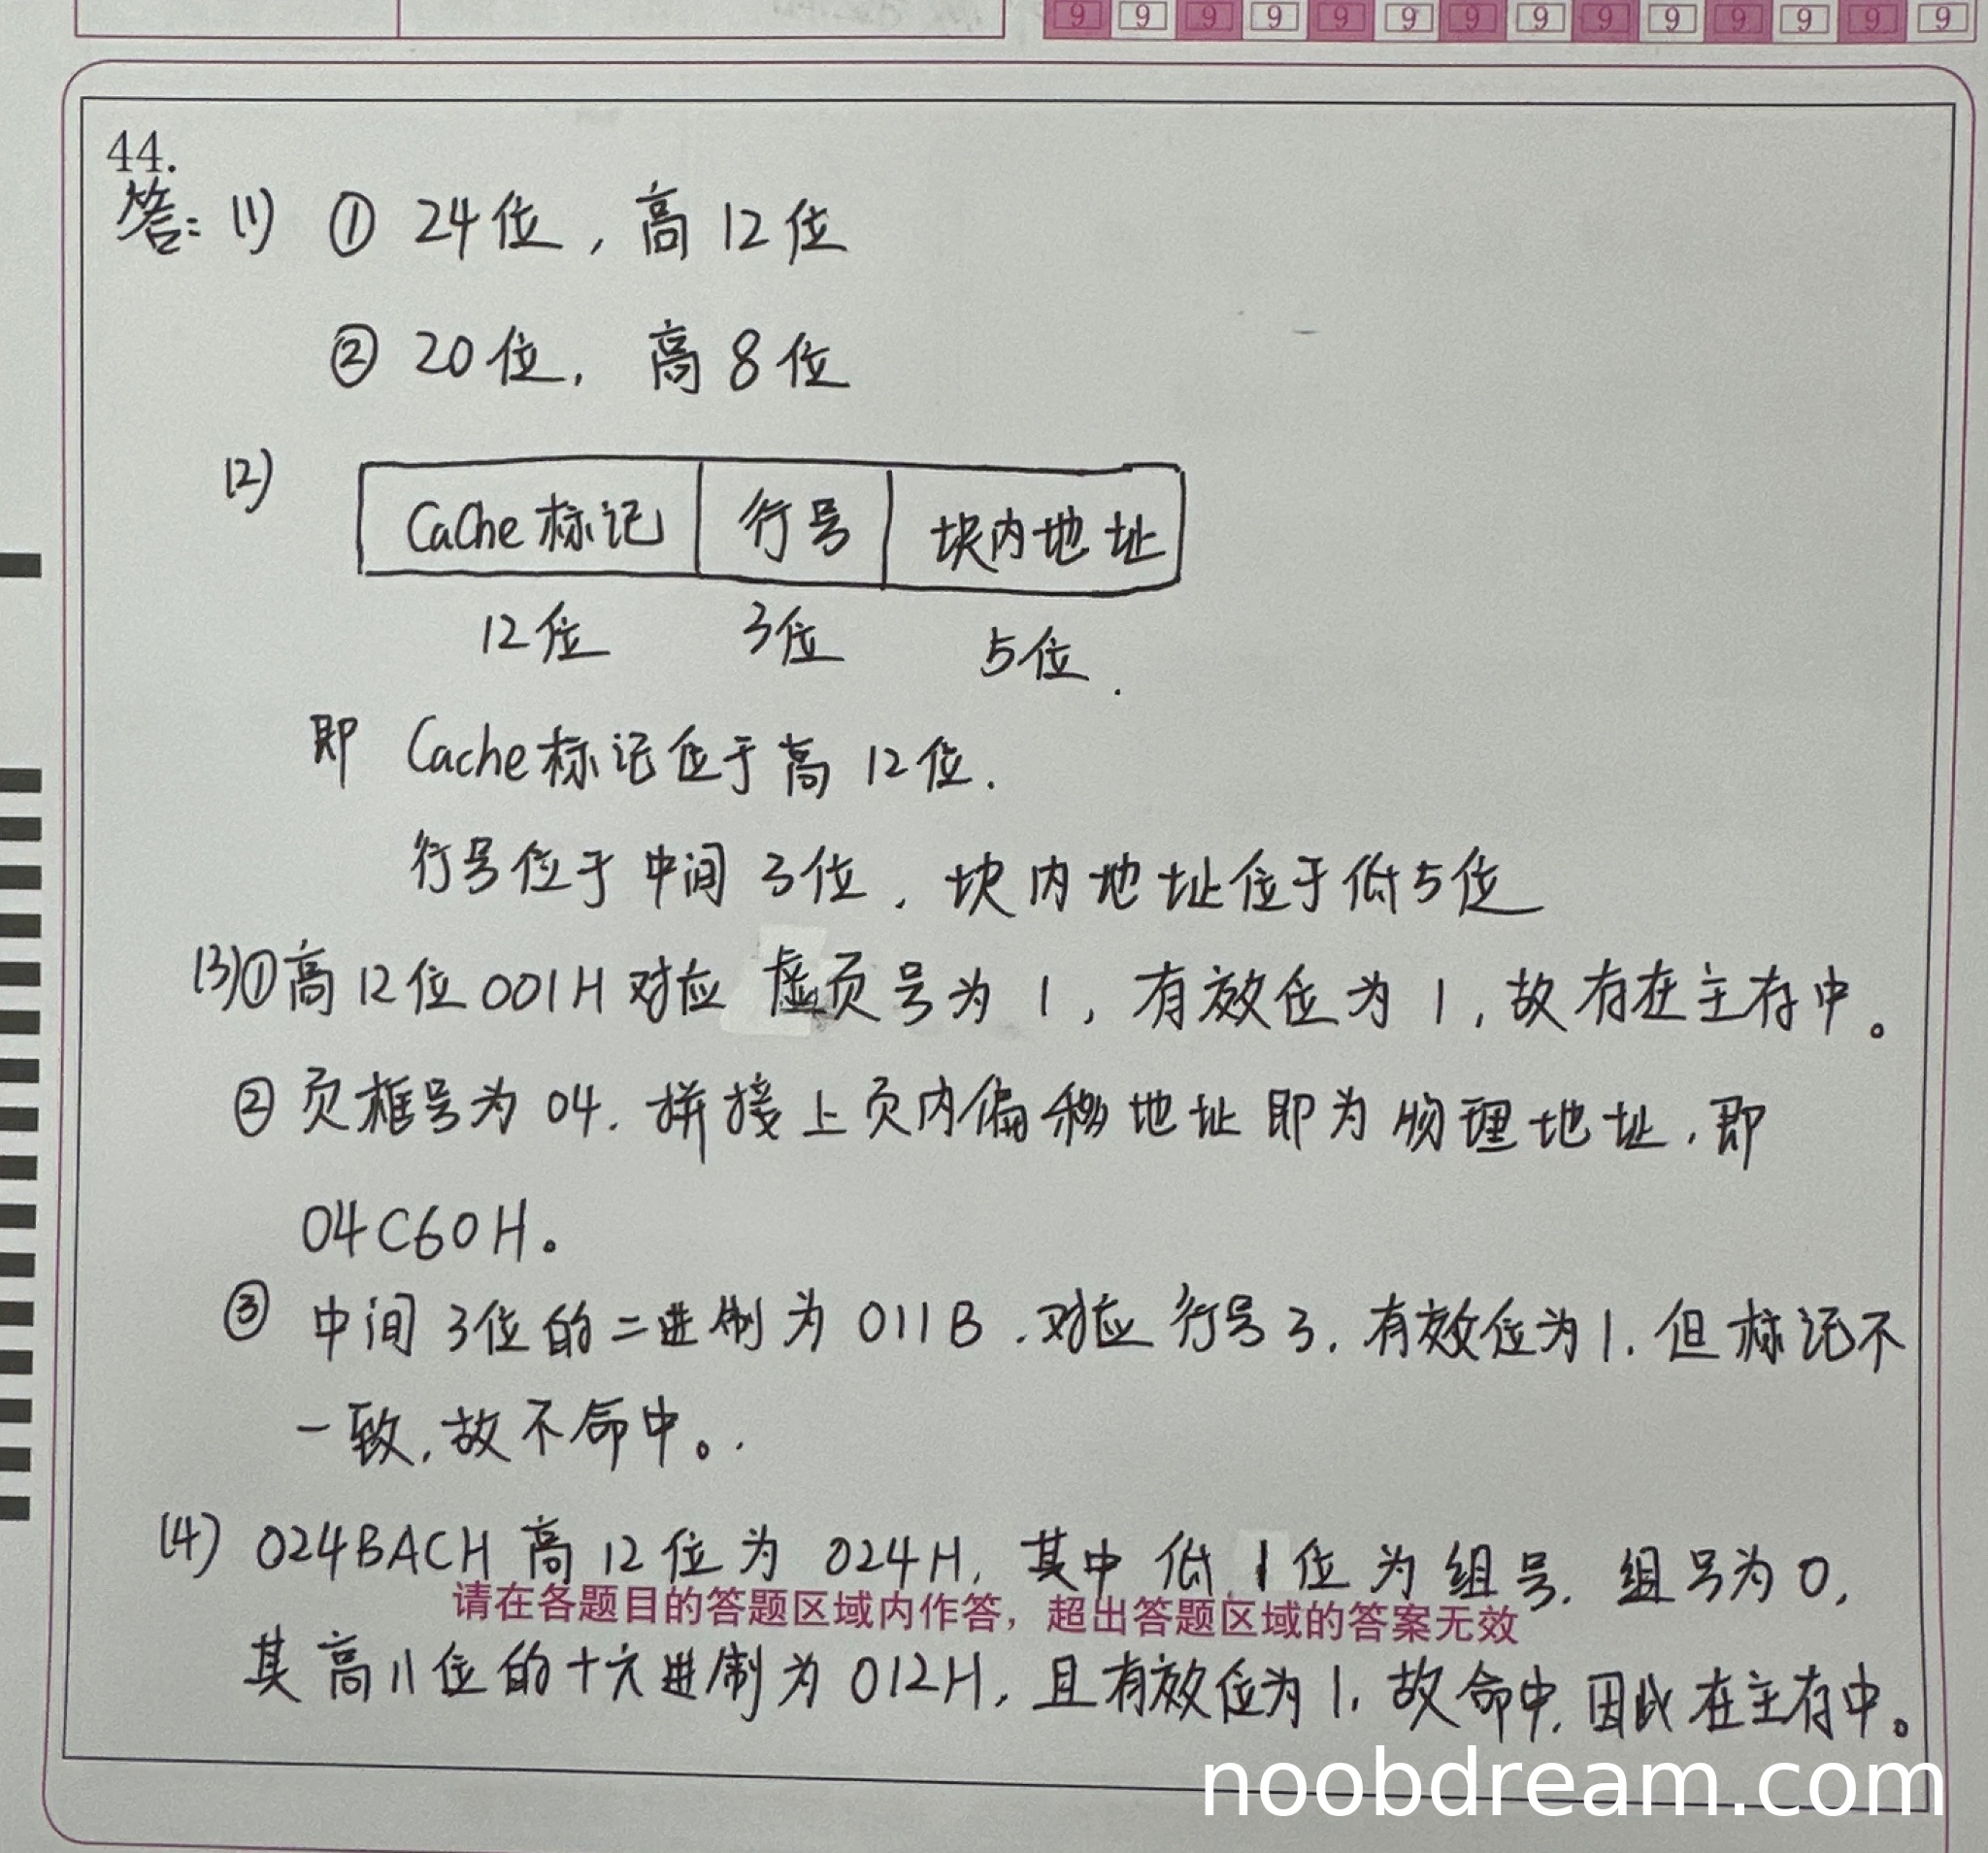 9 9 9 9 9 9 9 9 9 9 9 9 9 9
44.
答：(1) ① 24位，高12位
② 20位，高8位
(2) Cache标记 行号 块内地址
12位 3位 5位.
即 Cache标记位于高12位.
行号位于中间3位，块内地址位于低5位
(3)①高12位001H对应 虚页号为1，有效位为1，故存在主存中。
②页框号为04.拼接上页内偏移地址即为物理地址，即
04C60H。
③ 中间3位的二进制为011B.对应行号3.有效位为1.但标记不
一致，故不命中。.
(4) 024BACH高12位为024H，其中低1位为组号.组号为0，
请在各题目的答题区域内作答，超出答题区域的答案无效
其高11位的十六进制为012H，且有效位为1.故命中.因此在主存中。
noobdream.com